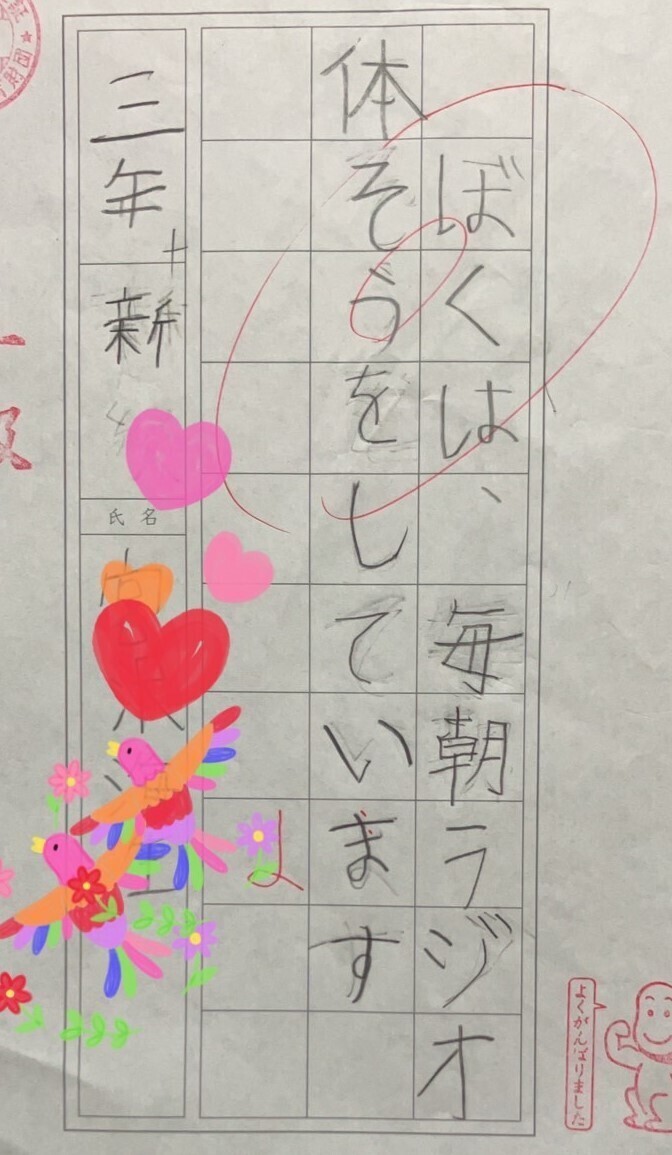 ぼくは、毎朝ラジオ
体そうをしています
ま
三年
新
氏名
よくがんばりました